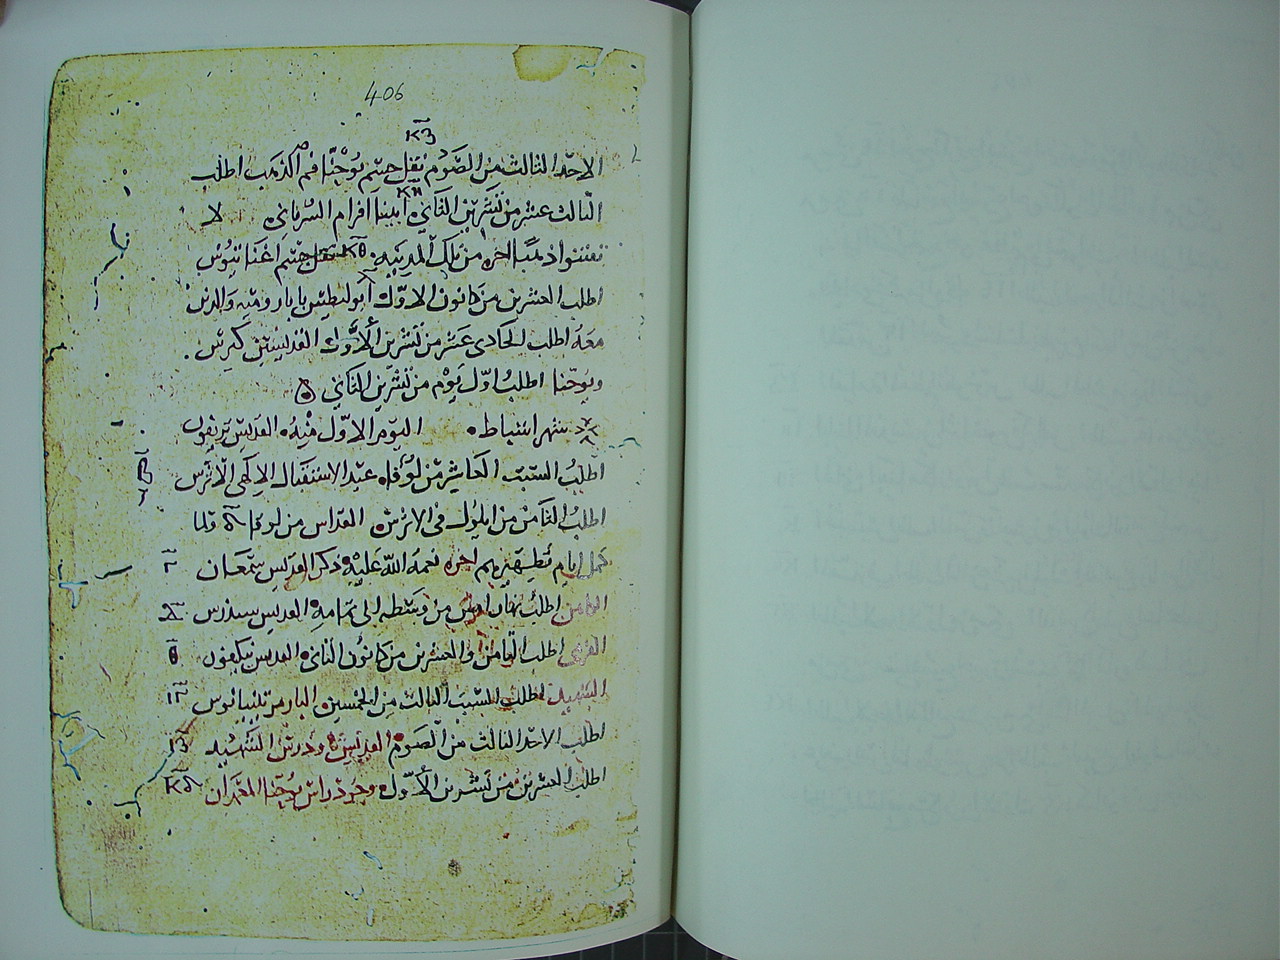 406
κζ
الاحد الثالث من الصوم نقل جسم يوحنا فم الذهب اطلب
الثالث عشر من تشرين الثاني κη ابينا افرام السرياني لا
تقتنوا ذهبا اخره من تلك المدينه κθ نقل جسم اغناتيوس
اطلب العشرين من كانون الاول λ ابوليطس بابا روميه والدين
معه اطلب الحادي عشر من تشرين الاول القديسين كيرس
ويوحنا اطلب اول يوم من تشرين الثاني
شهر اشباط اليوم الاول فيه القديس تريفون
اطلب السبت العاشر من لوقا عيد الاستقبال الالهي الاثرس
اطلب الثامن من ايلول في الاثرس القداس من لوقا فلما
كمل ايام تطهيرهم اخره نعمة الله عليه ذكر القديس سمعان γ
اطلب نهار من وسطه الى تمامه القديس
اطلب الثامن والعشرين من كانون الثاني القديس نيكيفون θ
الشهيد اطلب السبت الثالث من الخمسين البار مرتينيانوس ιγ
اطلب الاحد الثالث من الصوم القديس ثاودرس الشهيد ιζ
اطلب العشرين من تشرين الاول وجود راس يوحنا المعمدان κδ